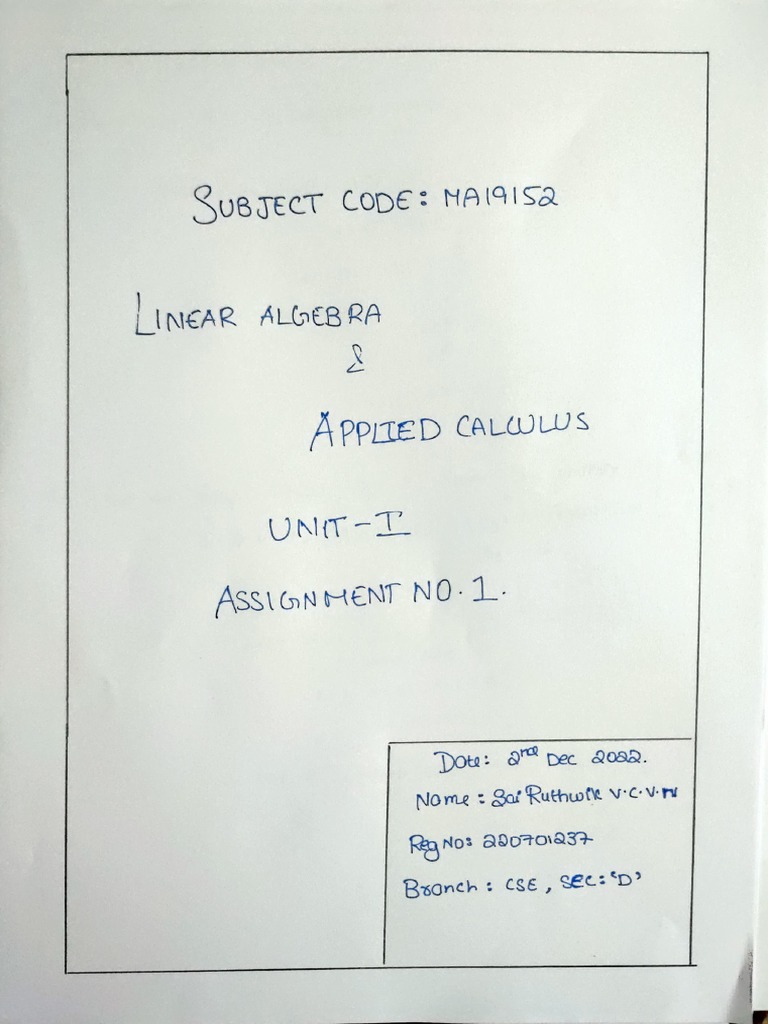 SUBJECT CODE: MA19152
LINEAR ALGEBRA
&
APPLIED CALCULUS
UNIT-I
ASSIGNMENT NO. 1.
Date: 2nd Dec 2022.
Name: Sai Ruthwik V.C.V.N
Reg No: 220701237
Branch: CSE, SEC: 'D'